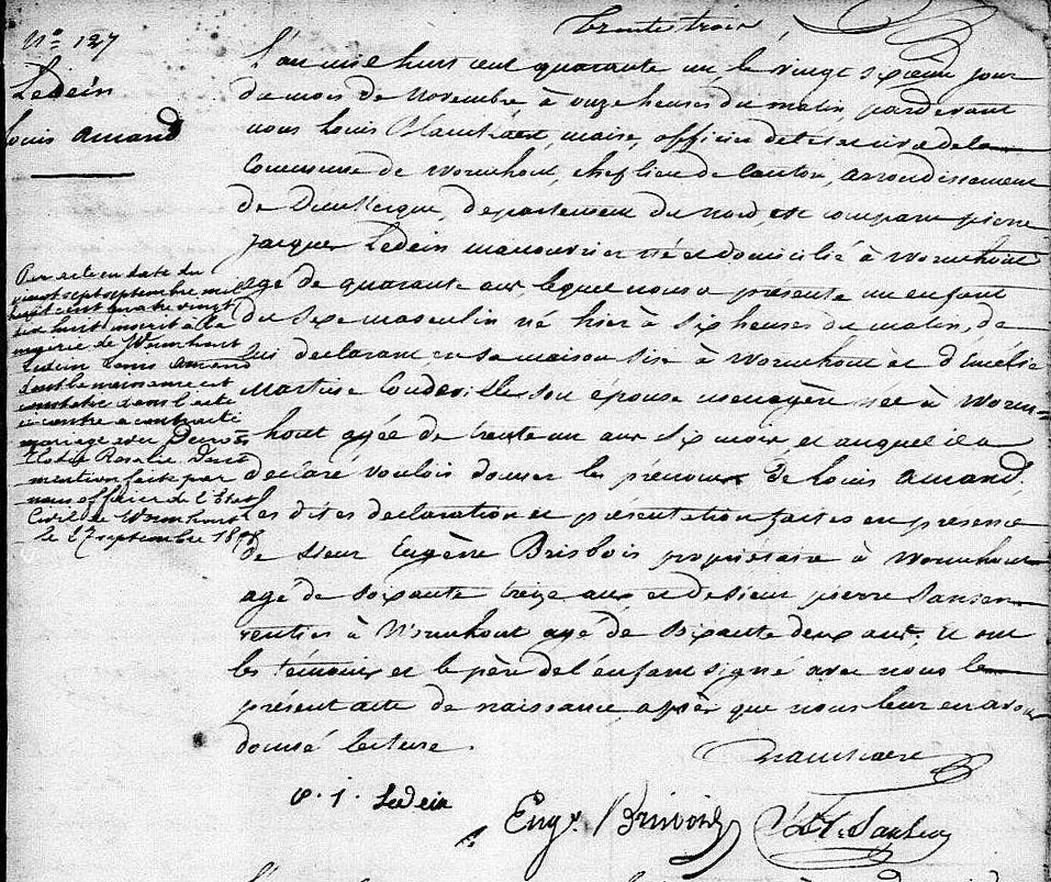 trente trois
N° 127
Ledein
Louis Amand
L'an mil huit cent quarante un, le vingt sixième jour
du mois de Novembre à onze heures du matin, pardevant
nous Louis Blanckaert, maire, officier de l'état civil de la
Commune de Wormhout, chef lieu de Canton, arrondissement
de Dunkerque, département du nord, est comparu pierre
Jacques Ledein manouvrier né et domicilié à Wormhout
agé de quarante ans, lequel nous a présenté un enfant
du Sexe masculin né hier à six heures du matin, de
lui déclarant en sa maison sise à Wormhout et d'Emélie
Martine Coudeville son épouse ménagère née à Worm=
=hout agée de trente un ans six mois, et auquel il a
déclaré vouloir donner les prénoms de Louis Amand.
Les dites déclaration et présentation faites en présence
de sieur Eugène Brisbois propriétaire à Wormhout
agé de soixante treize ans, et de sieur pierre Sansen
rentier à Wormhout agé de soixante deux ans; et ont
les témoins et le père de l'enfant signé avec nous le
présent acte de naissance, après que nous leur en avons
donné lecture.
Par acte en date du
vingt sept septembre mil
huit cent quatre vingt
dix huit inscrit à la
mairie de Wormhout
Ledein Louis Amand
dont la naissance est
constatée dans l'acte
ci contre a contracté
mariage avec
Rosalie. Dont
mention faite par
nous officier de l'Etat
Civil de Wormhout
le 27 septembre 1898
Blanckaert
p. j. Ledein
Eug. Brisbois
Sansen